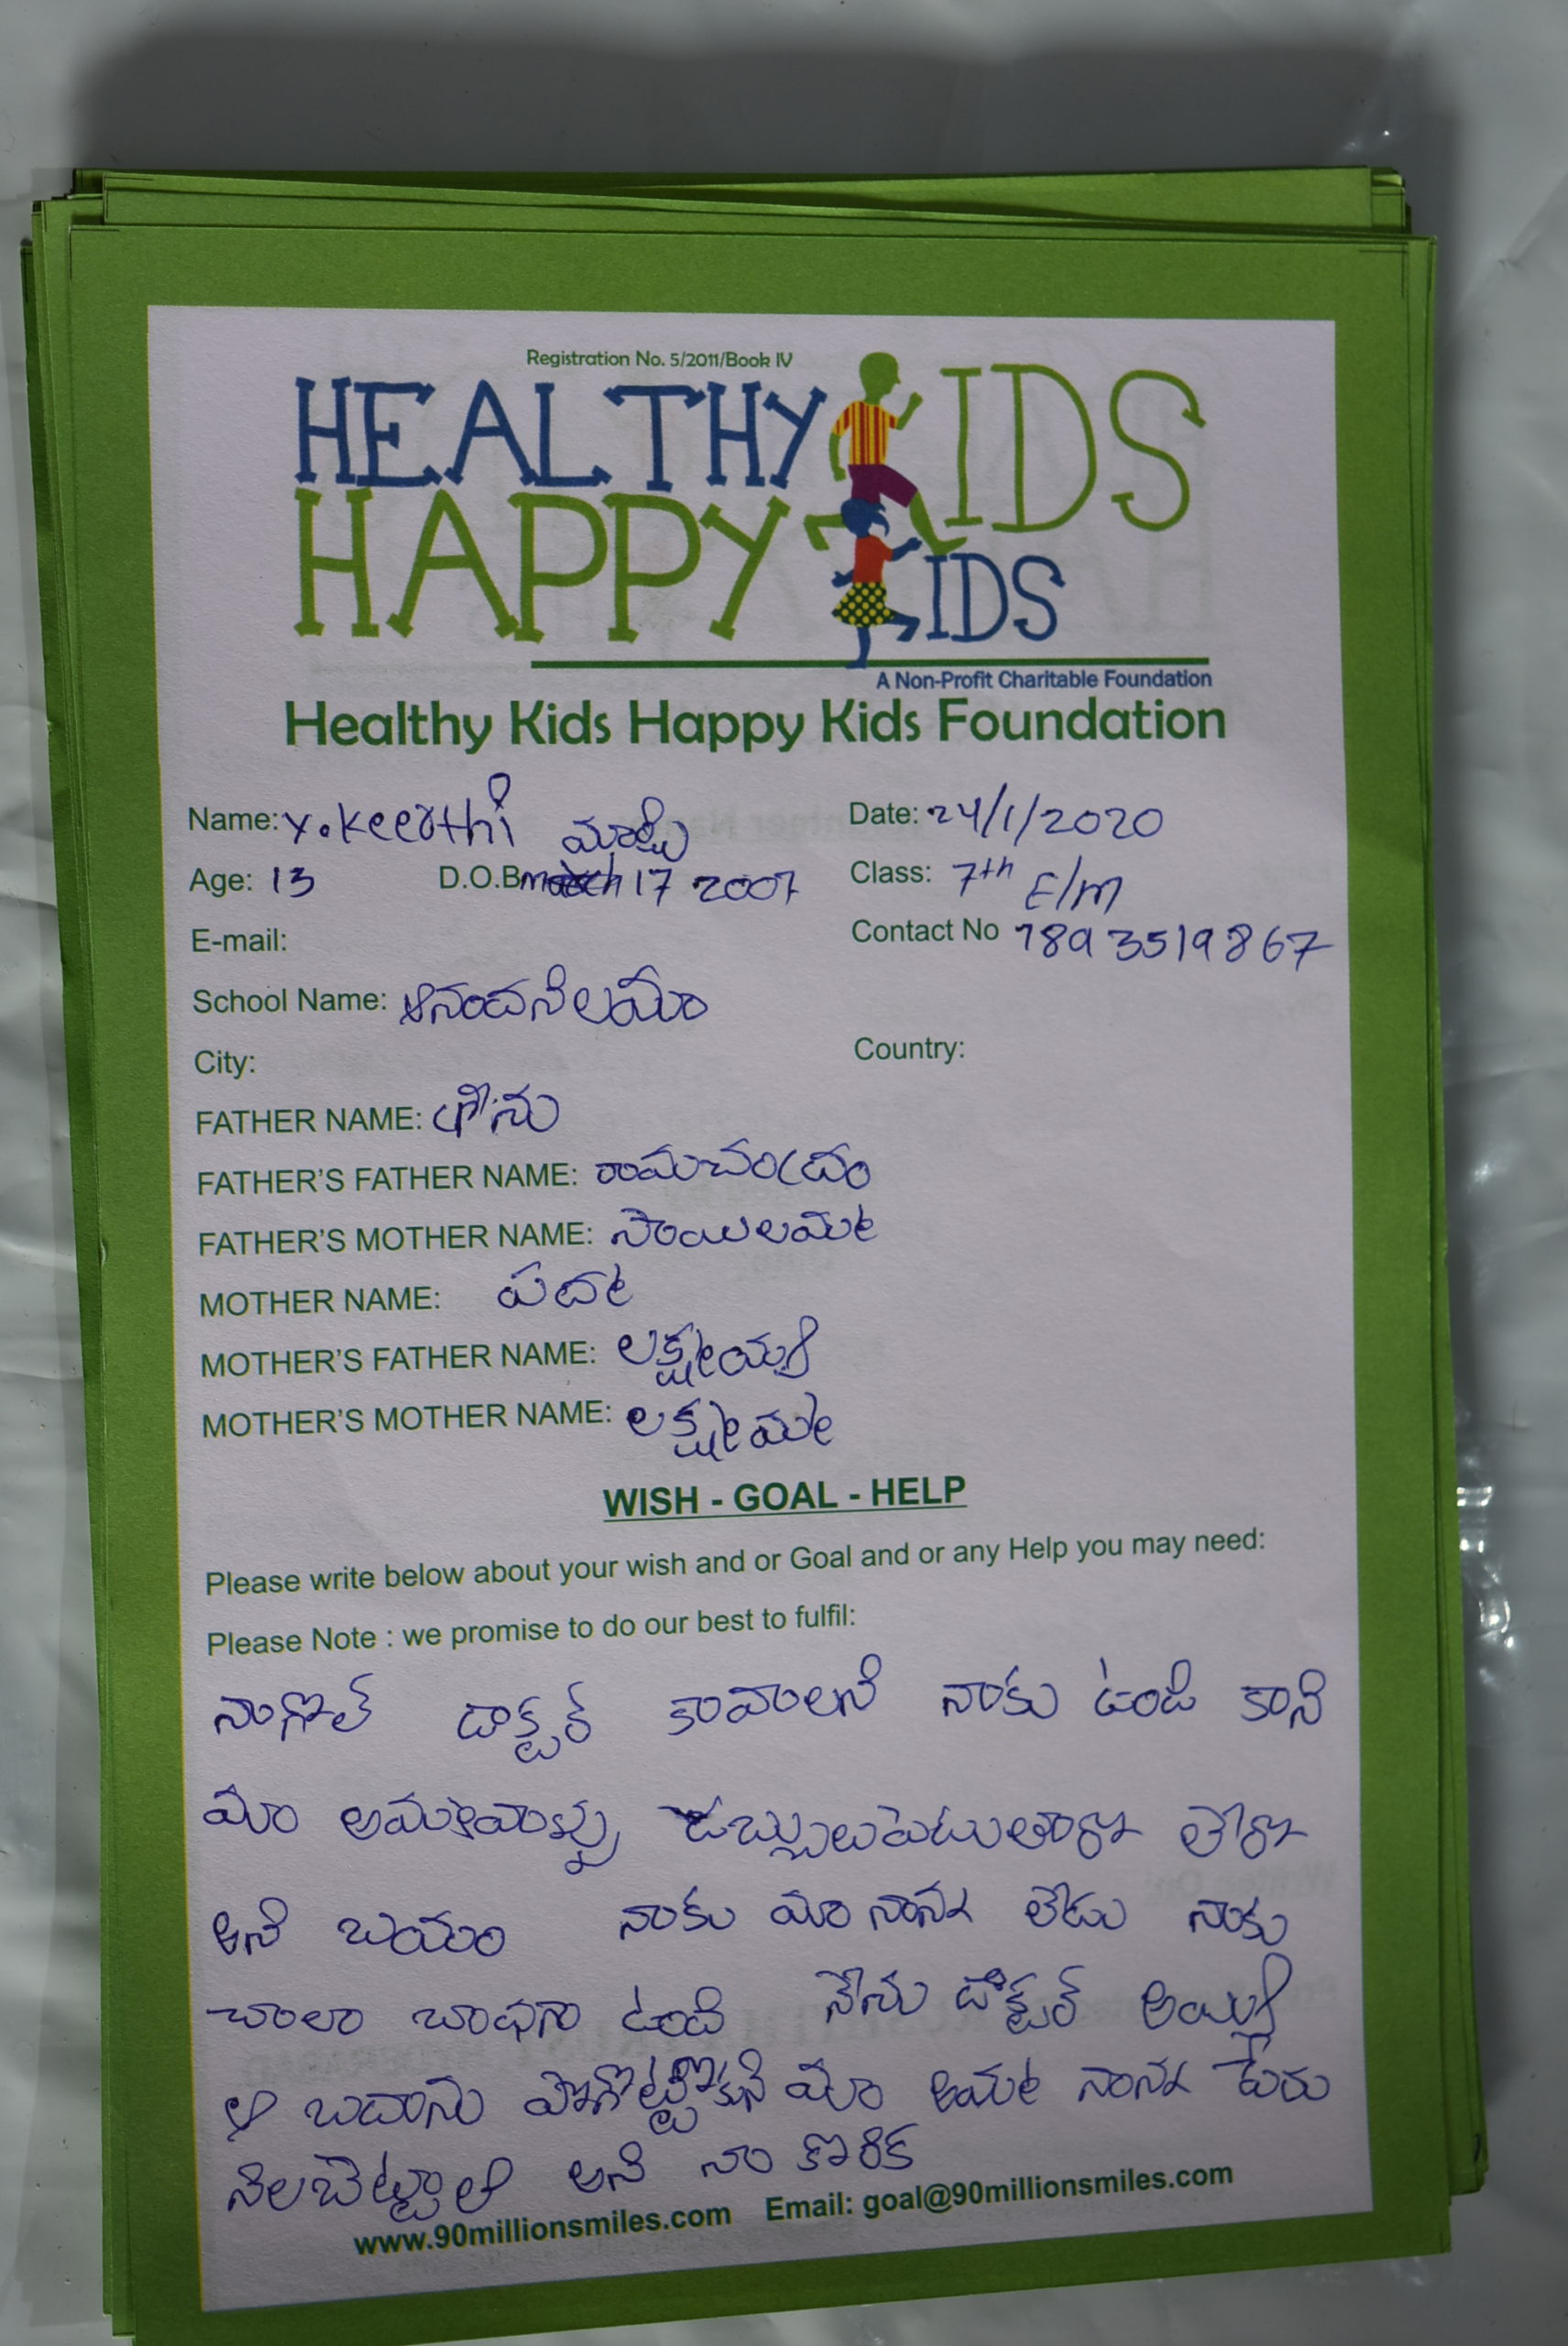 Registration No. 5/2011/Book IV
HEALTHY KIDS
HAPPY KIDS
A Non-Profit Charitable Foundation
Healthy Kids Happy Kids Foundation
Name: Y. Keerthi Date: 24/1/2020
Age: 13 D.O.B march 17 2007 Class: 7th E/m
E-mail: Contact No 7893519867
School Name: ఆనందనిలయం
City: Country:
FATHER NAME: శ్రీను
FATHER'S FATHER NAME: రామచంద్రం
FATHER'S MOTHER NAME: సాయిలమ్మ
MOTHER NAME: పద్మ
MOTHER'S FATHER NAME: లక్ష్మయ్య
MOTHER'S MOTHER NAME: లక్ష్మమ్మ
WISH - GOAL - HELP
Please write below about your wish and or Goal and or any Help you may need:
Please Note : we promise to do our best to fulfil:
నాగోల్ డాక్టర్ కావాలని నాకు ఉంది కాని
మా అమ్మవాళ్ళు డబ్బులుపెటుతారూ లేరూ
అని బయం నాకు మా నాన్న లేడు నాకు
చాలా బాధగా ఉంది నేను డాక్టర్ అయ్యి
ఆ బదాను పోగొట్టుకుని మా అమ్మ నాన్న పేరు
నిలబెట్టాలి అని నా కోరిక
www.90millionsmiles.com Email: goal@90millionsmiles.com